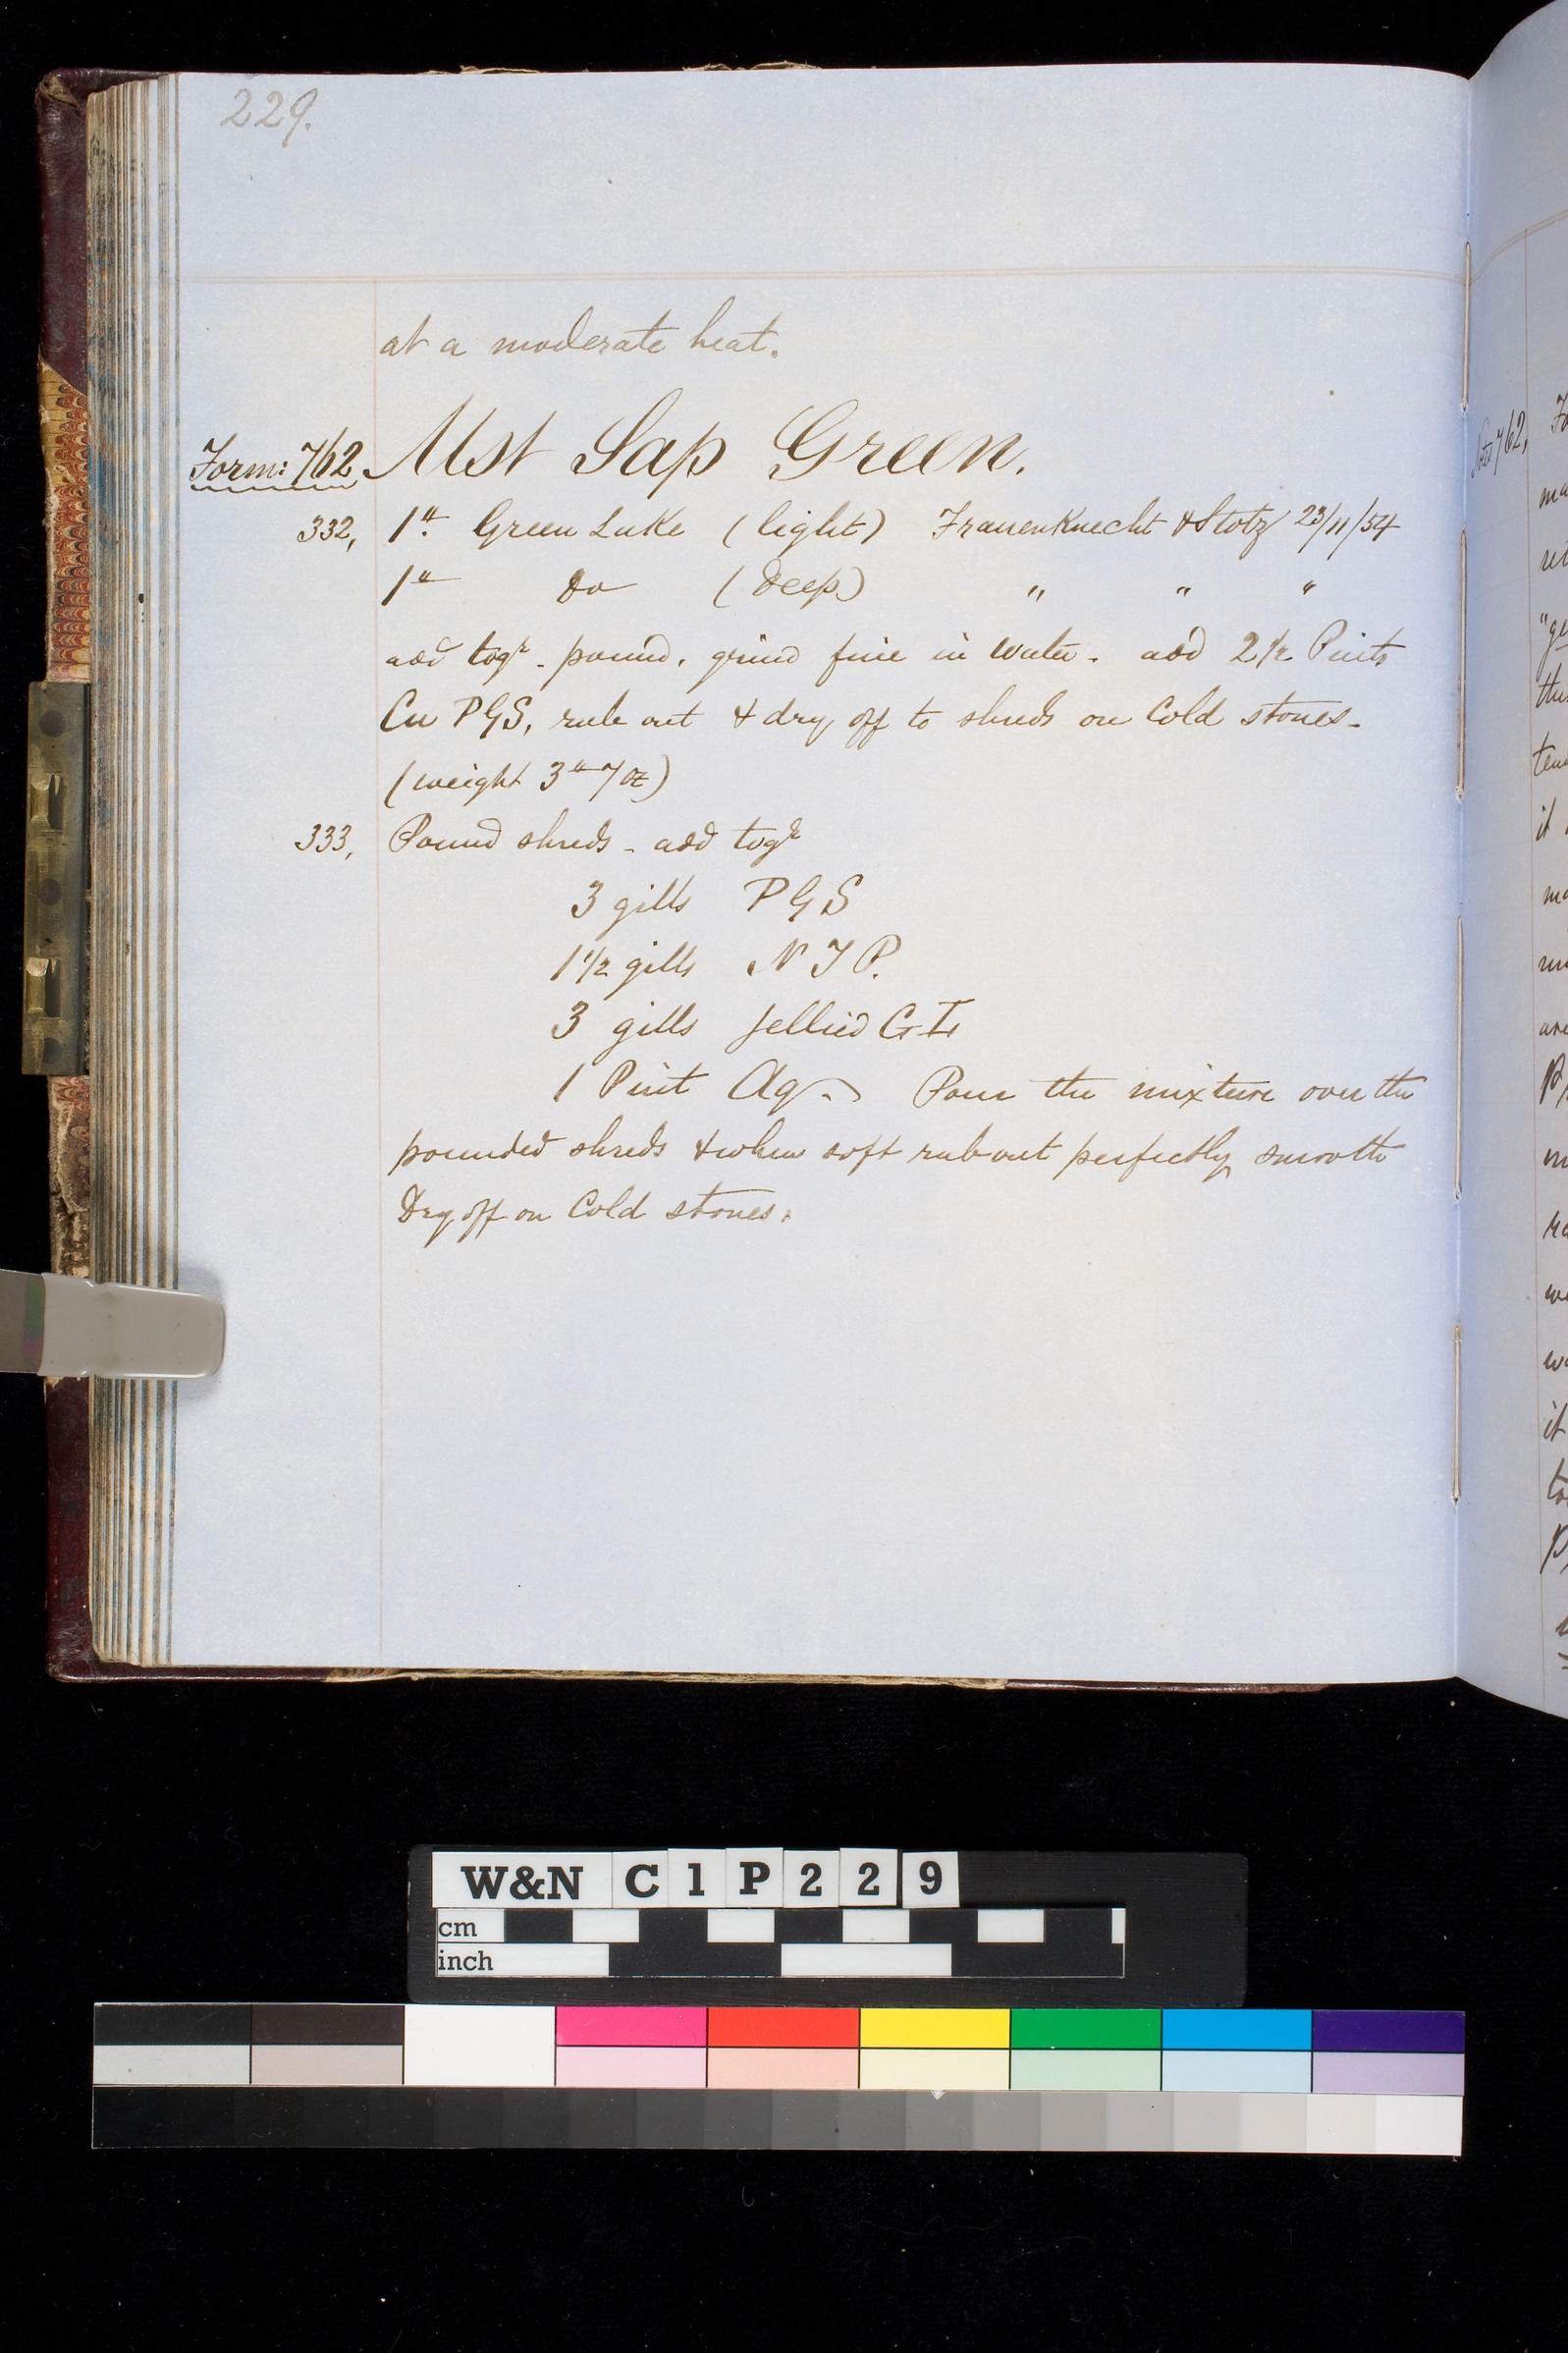 229.
at a moderate heat.
Form: 762. Mst Sap Green.
332, 1# Green Lake (light) Frauenknecht & Stotz 23/11/54
1# Do (Deep) " " "
add togr. pound, grind fine in water. add 2 1/2 Pints
Cu PGS, rub out & dry off to shreds on Cold stones.
(weight 3# 7 oz)
333, Pound shreds - add togr
3 gills PGS
1 1/2 gills NTP.
3 gills jellied G I
1 Pint Aq. Pour the mixture over the
pounded shreds & when soft rub out perfectly smooth
Dry off on Cold stones.
762,
W&N C1P229
cm
inch